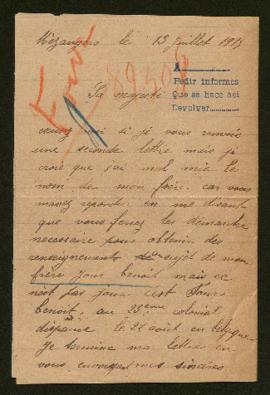 Mézangers le 13 juillet 1915
A
Pedir informes
Que se hace aci
Devolver
Sa majesté
excusez moi si je vous renvois
une seconde lettre mais je
crois que j'ai mal mis le
nom de mon frère. car vous
mavez repondu en me disant
que vous ferez les démarche
necessaire pour obtenir des
renseignements au sujet de mon
frère Jour benoit mais ce
nest pas jour. c'est Fours
benoit, au 23ème colonial
disparue le 22 août en belgique
je termine ma lettre en
vous envoyant mes sincères